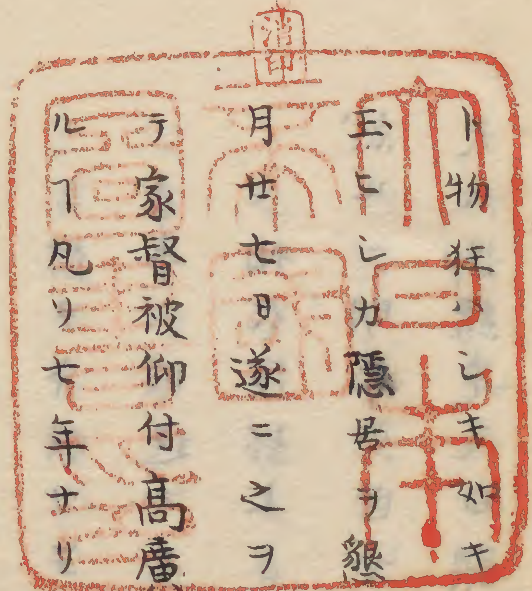 ト物狂ハシキ如キ
玉ヒシカ隠居ヲ懇
月廿七日遂ニ之ヲ
テ家督被仰付高廣
ルヿ凡ソ七年ナリ
消印